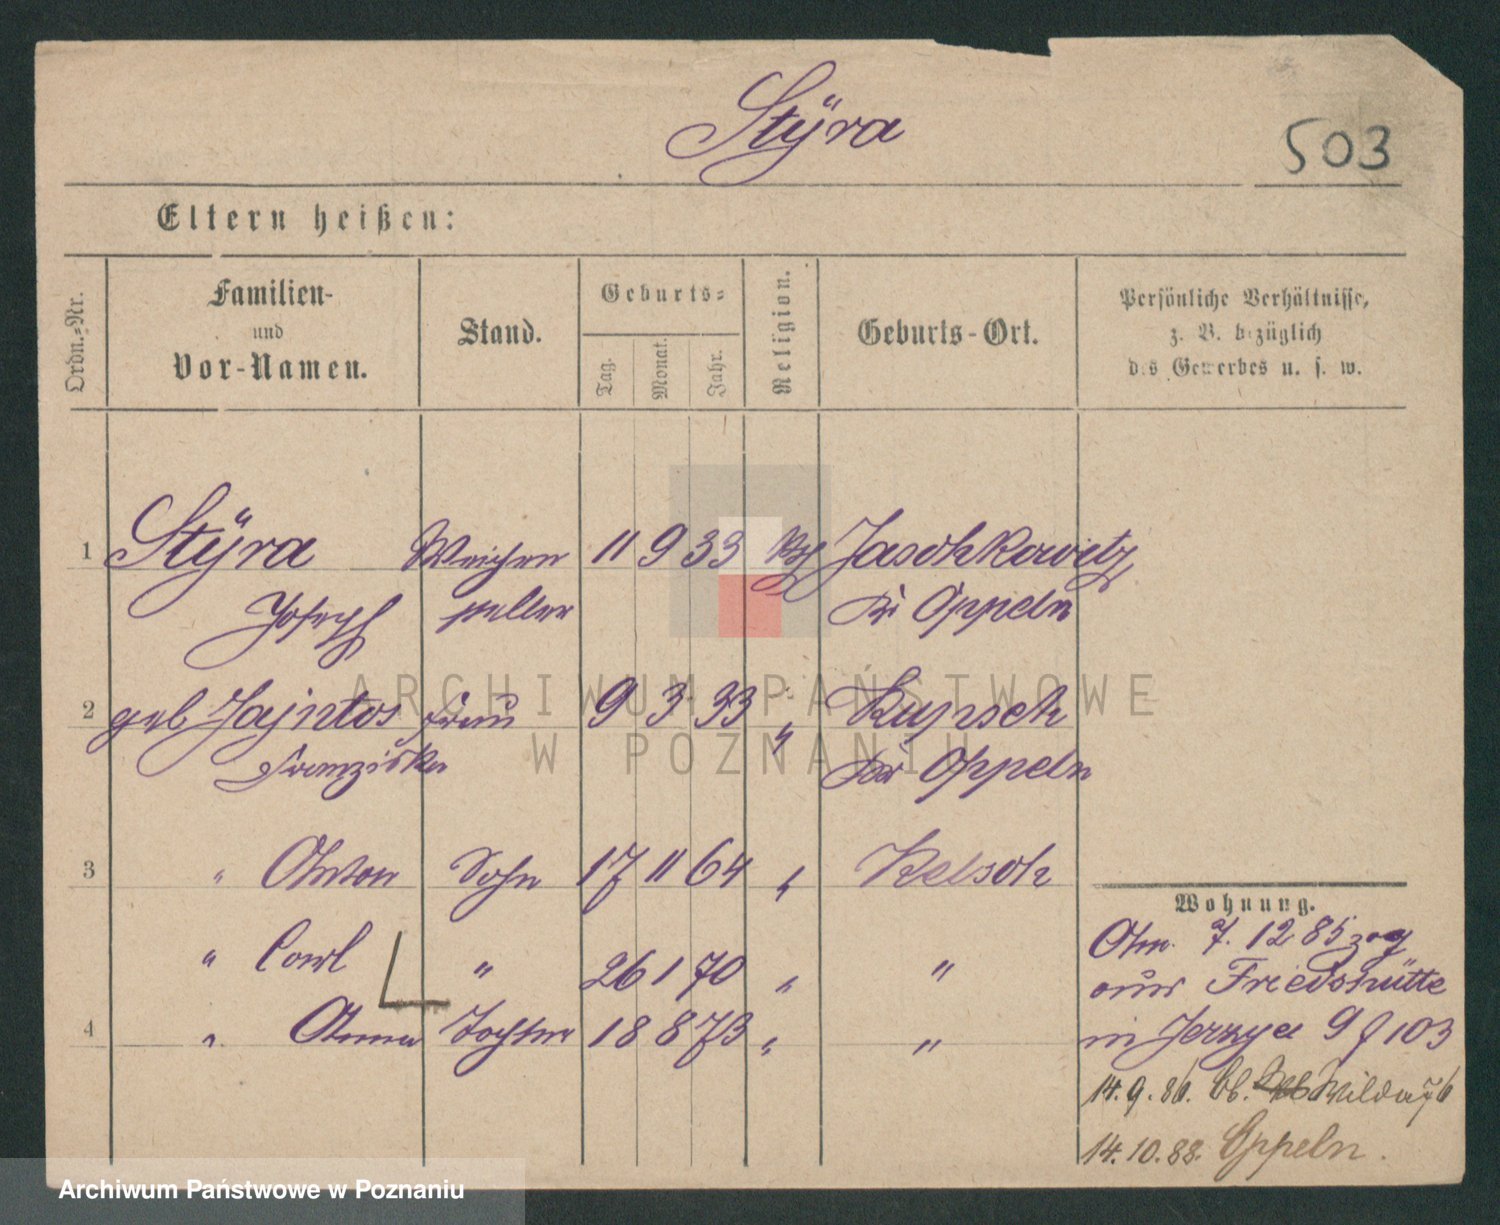 Stÿra
503
Eltern heißen:
Ordn.-Nr.
Familien-
und
Vor-Namen.
Stand.
Geburts-
Tag.
Monat.
Jahr.
Religion.
Geburts-Ort.
Persönliche Verhältnisse,
z. B. bezüglich
des Gewerbes u. s. w.
1 Stÿra Weichen 11 9 33 kth Jaschkowitz
Joseph steller Kr Oppeln
2 geb Hajntos Frau 9 3 33 " Kupsch
Franziska Kr Oppeln
3 " Anton Sohn 17 11 64 " Kelsch
" Carl " 26 1 70 " "
4 " Anna Tochter 18 8 73 " "
Wohnung.
Am 7. 12 85 zog
aus Friedshütte
in Jerzyce 9 f 103
14.9.86. Wilda 76
14.10.88. Oppeln.
ARCHIWUM PAŃSTWOWE
W POZNANIU
Archiwum Państwowe w Poznaniu